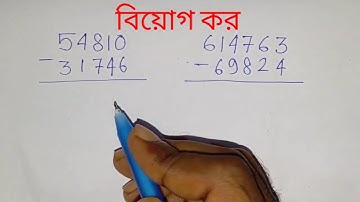 বিয়োগ কর
54810 614763
-31746 -69824